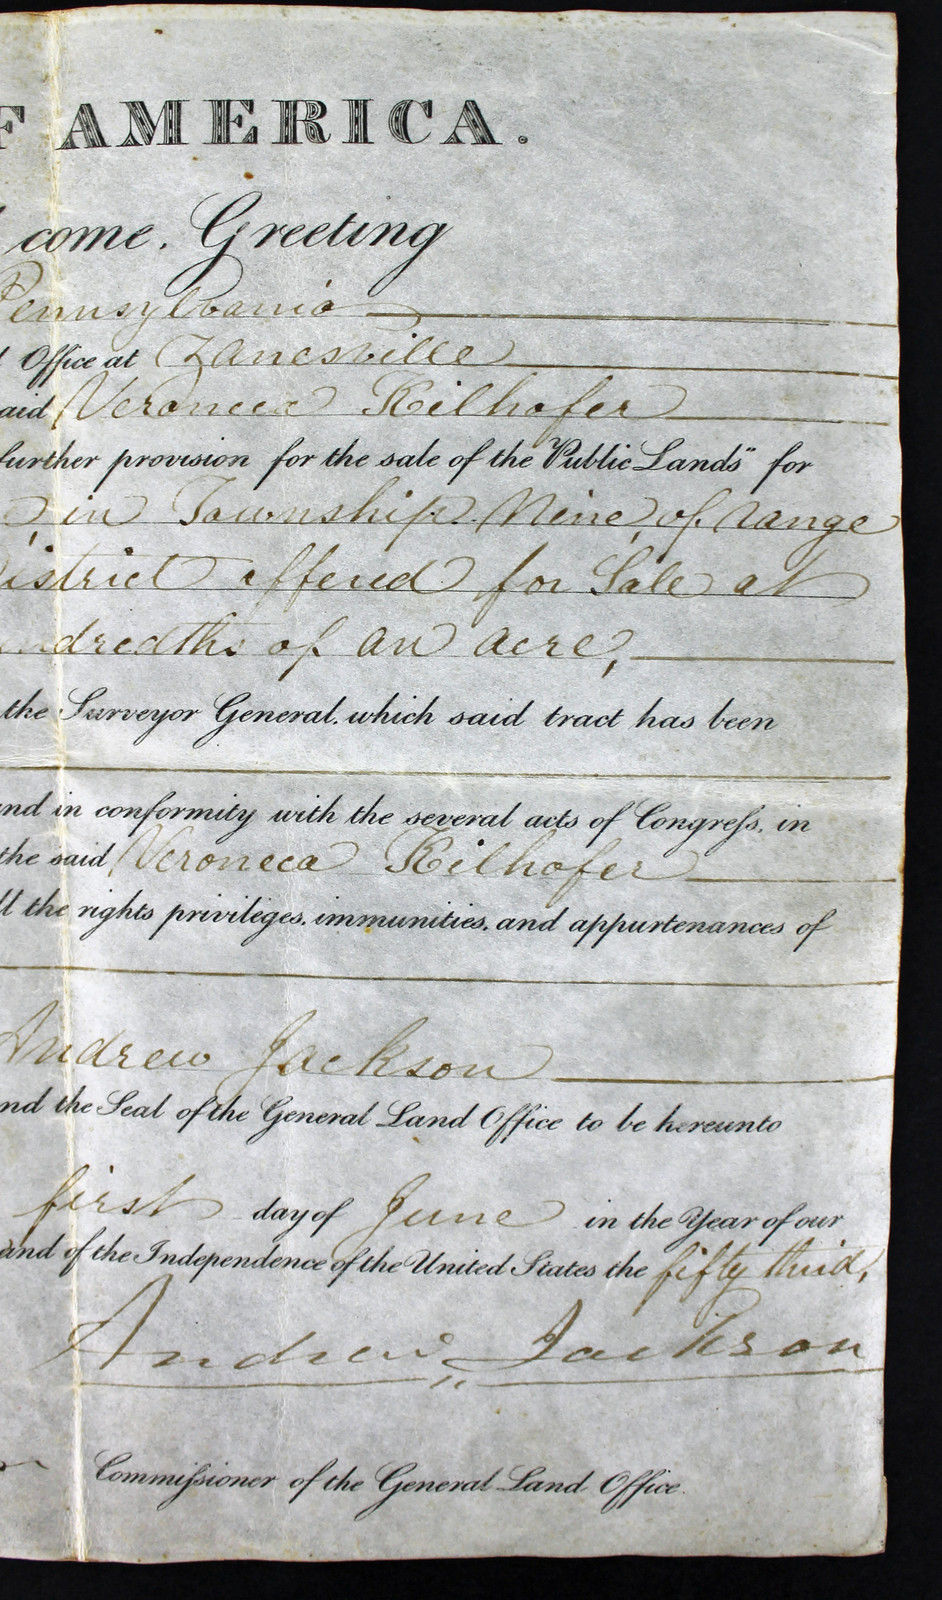 F AMERICA.
come, Greeting
Pennsylvania
Office at Zanesville
aid Veroneca Kilhofer
further provision for the sale of the "Public Lands" for
in Township Nine, of range
istrict offered for Sale at
ndredths of an acre,
the Surveyor General, which said tract has been
and in conformity with the several acts of Congreſs, in
the said Veroneca Kilhofer
ll the rights privileges, immunities, and appurtenances of
Andrew Jackson
nd the Seal of the General Land Office to be hereunto
first day of June in the Year of our
and of the Independence of the United States the fifty third,
Andrew Jackson
Commiſsioner of the General Land Office.